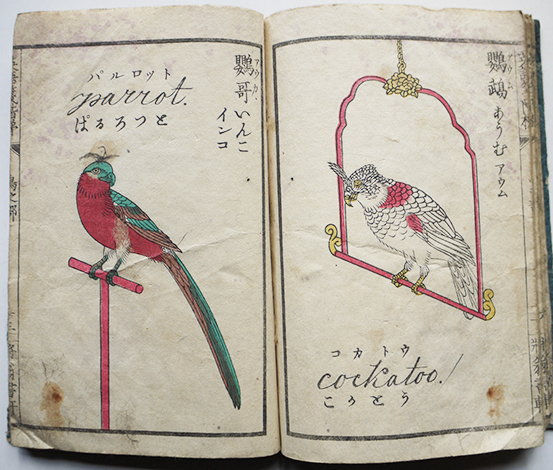 鸚鵡 あうむ アウム
アウム
コカトウ
cockatoo!
こかとう
アウカ
鸚哥 いんこ
インコ
パルロット
parrot.
ぱるろつと